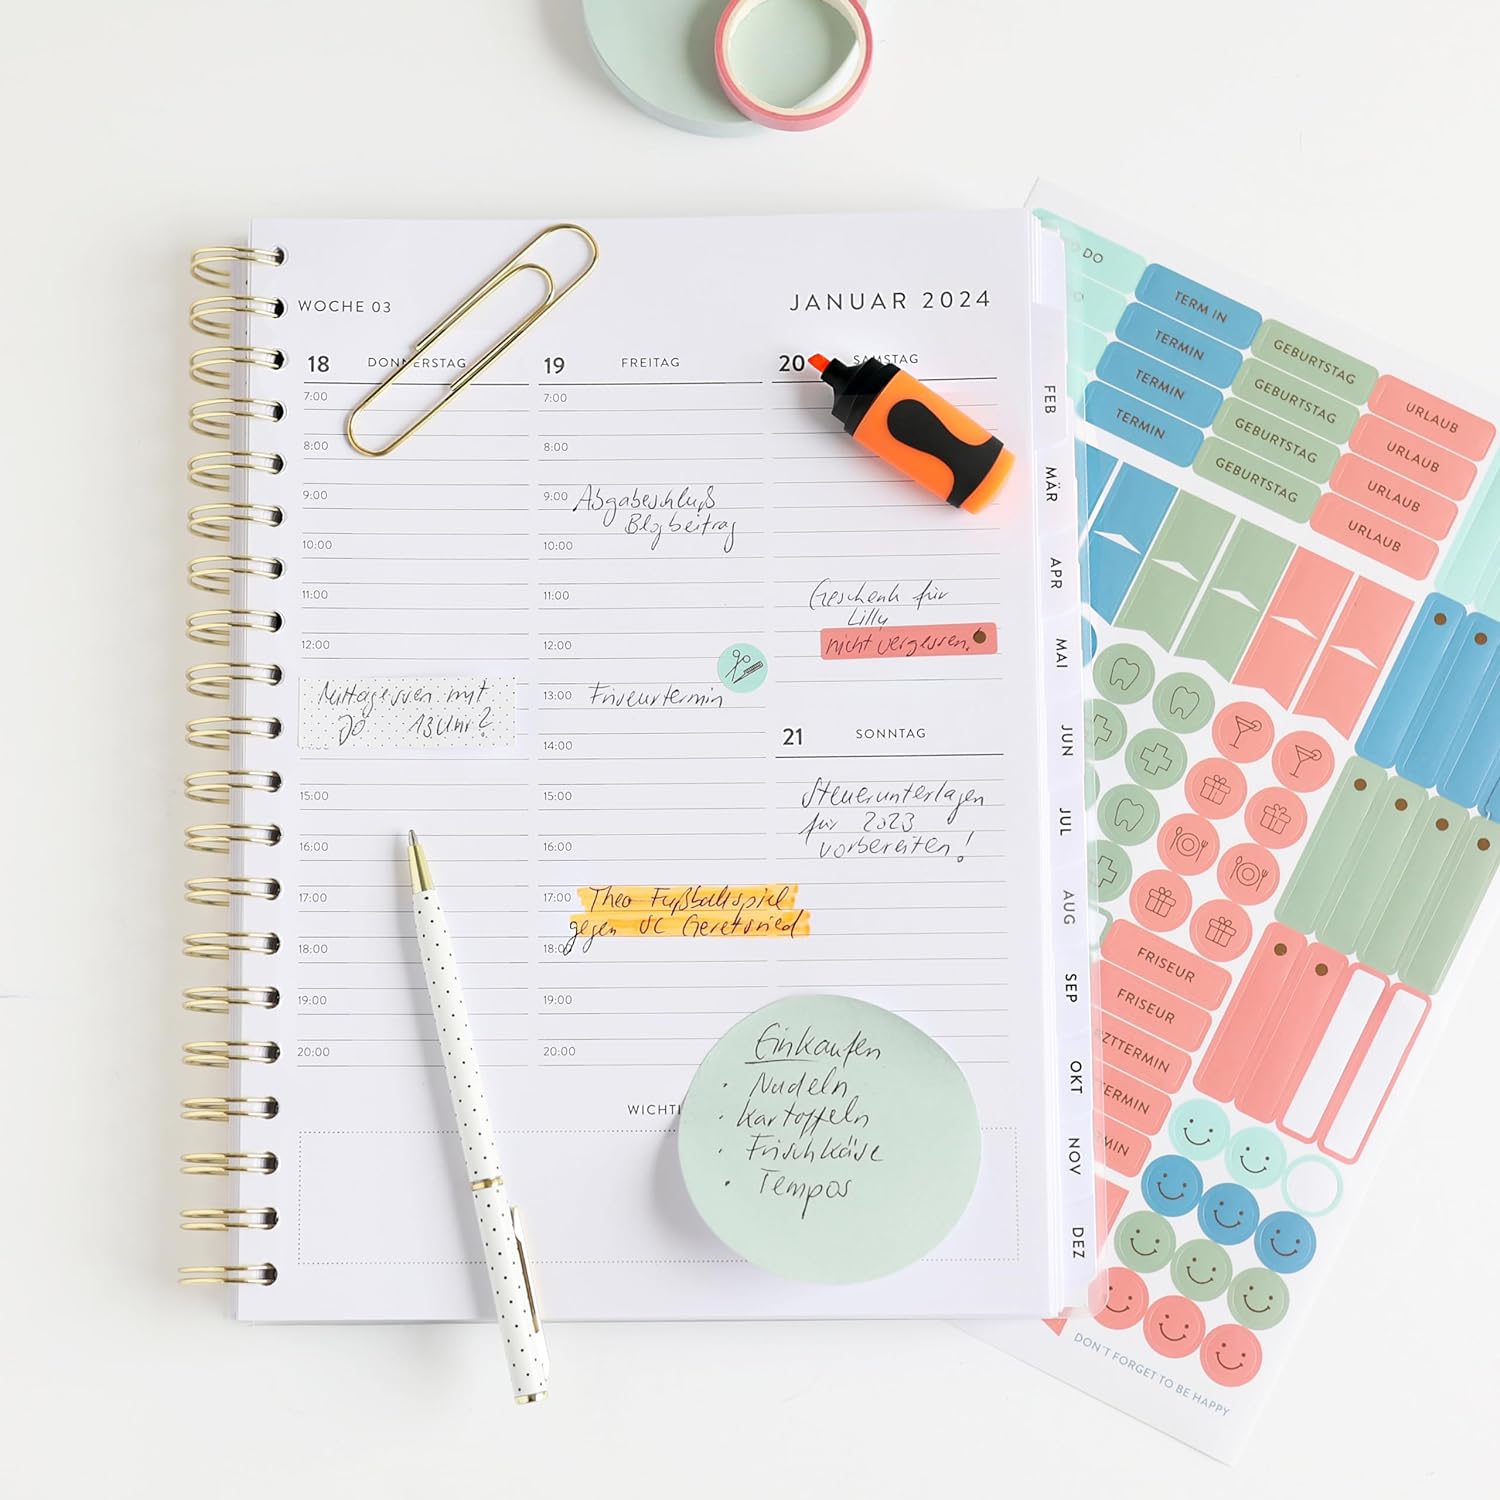 WOCHE 03
JANUAR 2024
18 DONNERSTAG
7:00
8:00
9:00
10:00
11:00
12:00
Mittagessen mit
Jö 13 Uhr?
15:00
16:00
17:00
18:00
19:00
20:00
19 FREITAG
7:00
8:00
9:00 Abgabeschluß
Blogbeitrag
10:00
11:00
12:00
13:00 Friseurtermin
14:00
15:00
16:00
17:00 Theo Fußballspiel
gegen SC Geretsried
18:00
19:00
20:00
20 SAMSTAG
Geschenk für
Lilly
nicht vergessen!
21 SONNTAG
Steuerunterlagen
für 2023
vorbereiten!
WICHTI
Einkaufen
· Nudeln
· Kartoffeln
· Frischkäse
· Tempos
FEB
MÄR
APR
MAI
JUN
JUL
AUG
SEP
OKT
NOV
DEZ
DO
TERMIN
TERMIN
TERMIN
TERMIN
GEBURTSTAG
GEBURTSTAG
GEBURTSTAG
GEBURTSTAG
URLAUB
URLAUB
URLAUB
URLAUB
FRISEUR
FRISEUR
ZTTERMIN
TERMIN
MIN
DON'T FORGET TO BE HAPPY